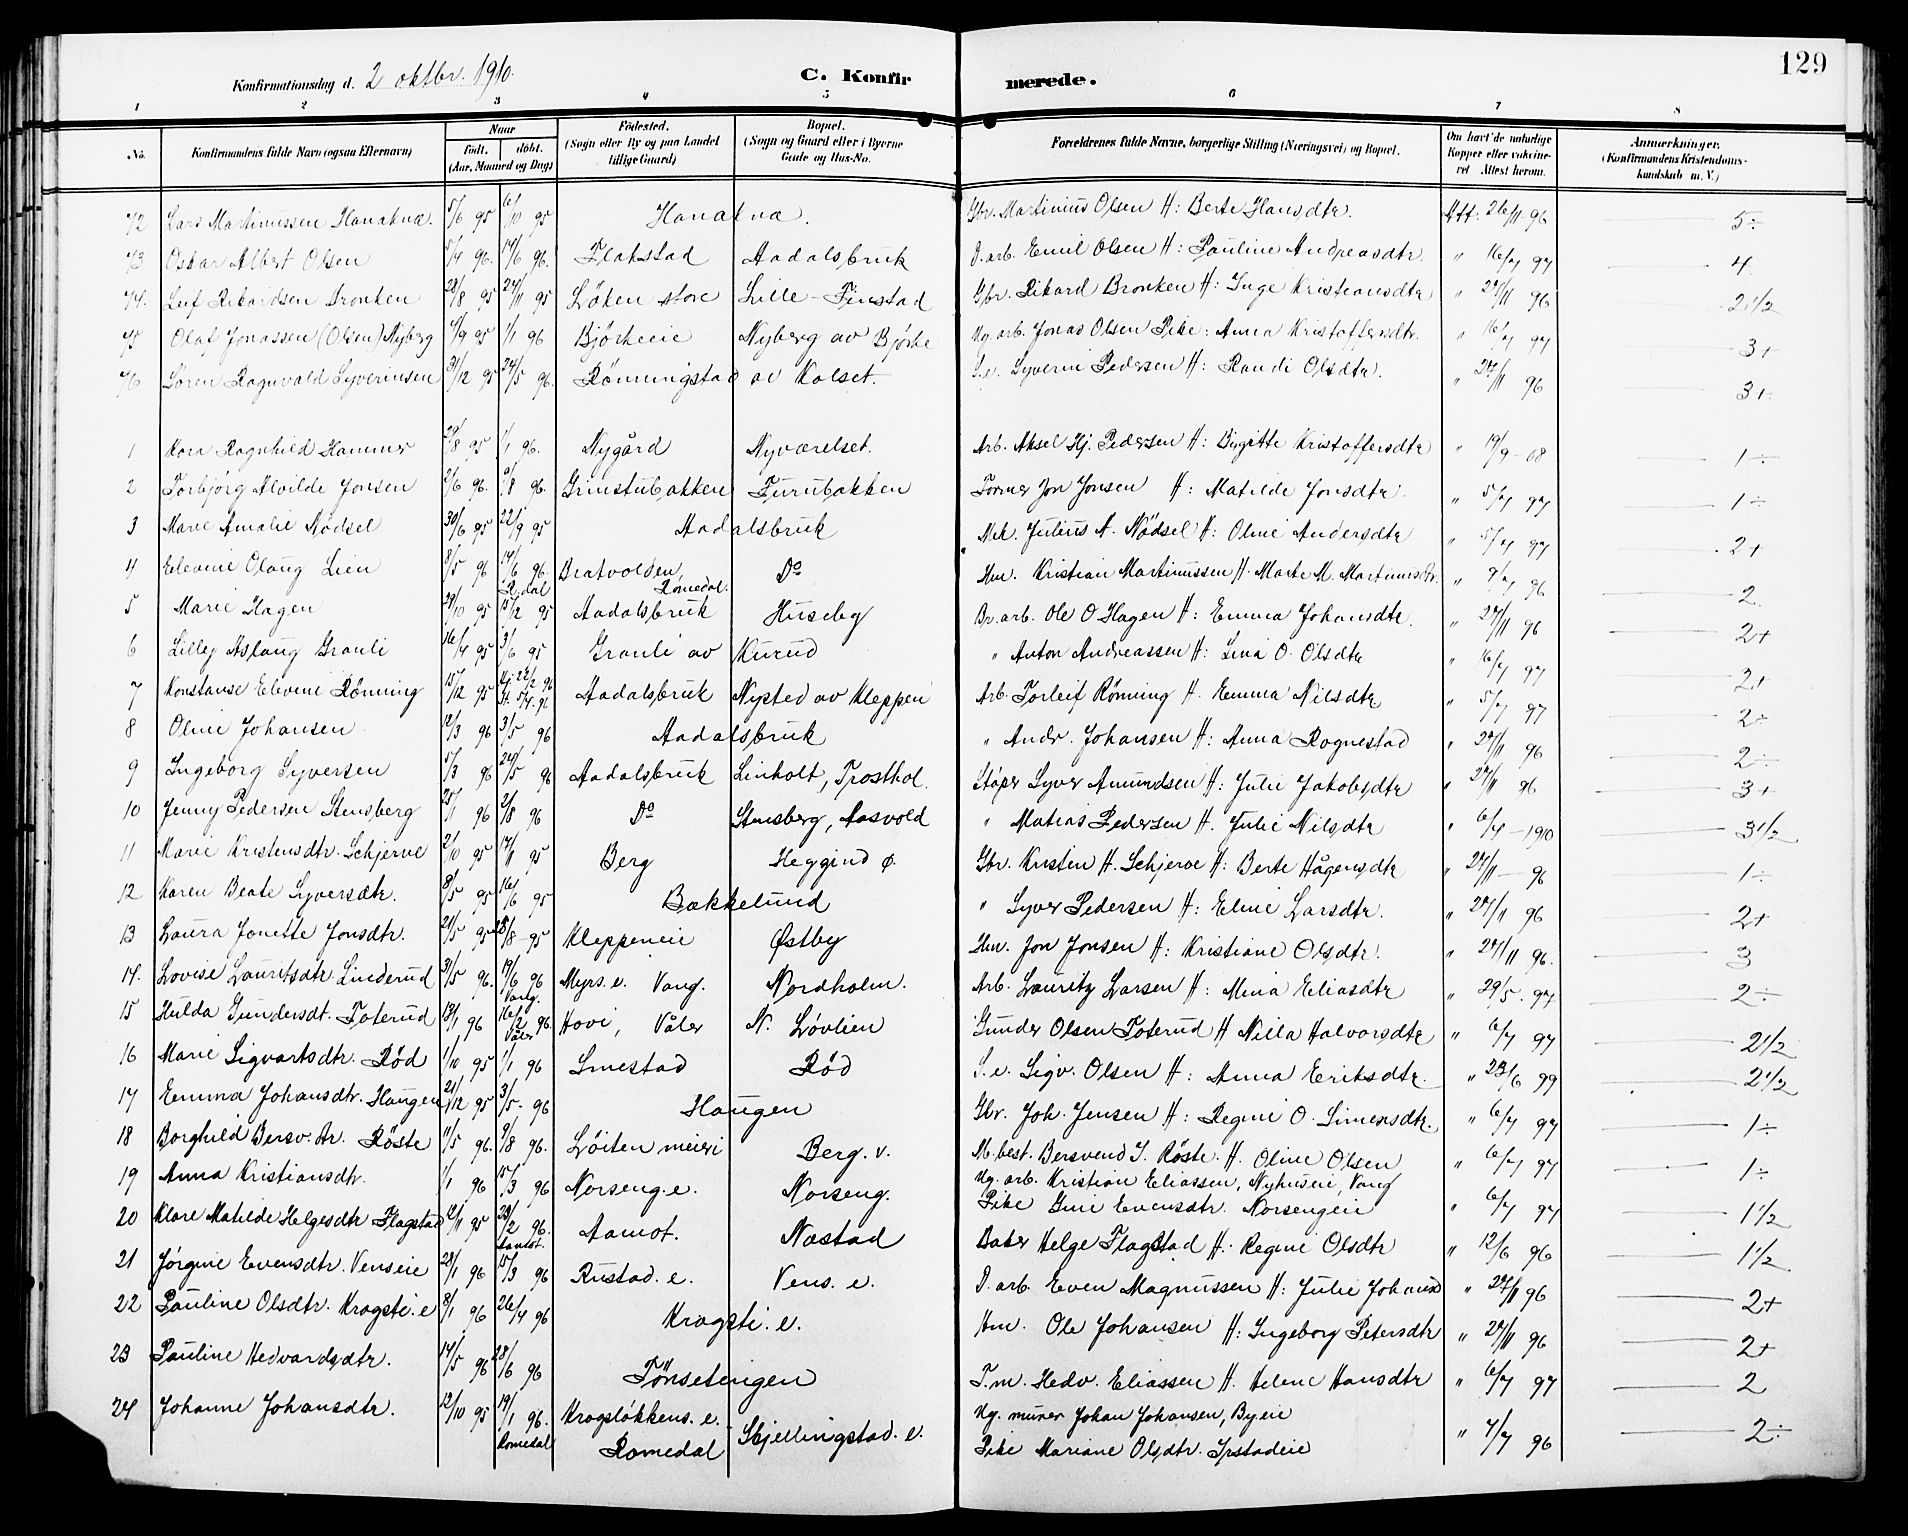 129
Konfirmationsdag d. 2 oktbr. 1910. C. Konfirmerede.
1 2 3 4 5 6 7 8
No. Konfirmandens fulde Navn (ogsaa Efternavn) Naar født. døbt. (Aar, Maaned og Dag) Fødested. (Sogn eller By og paa Landet tillige Gaard) Bopæl. (Sogn og Gaard eller i Byerne Gade og Hus-No. Forældrenes fulde Navne, borgerlige Stilling (Næringsvei) og Bopæl. Om havt de naturlige Kopper eller vakcineret Attest herom. Anmerkninger. (Konfirmandens Kristendomskundskab m. V.)
42 Lars Martinussen Hanaknæ. 5/6 95 6/10 95 Hanaknæ. Gbr. Martinius Olsen H: Berte Hansdtr. Att: 26/11 96 5÷
43 Oskar Albert Olsen 5/4 96. 14/6 96. Flakstad Aadalsbruk D. arb. Emil Olsen H: Pauline Andreasdtr. " 16/7 97 4
44. Leif Rikardsen Bronken 28/8 95 24/11 95 Løken store Lille-Finstad Gbr. Rikard Bronken H: Inge Kristiansdtr " 27/11 96 2 1/2
45 Olaf Jonassen (Olsen) Nyberg 4/9 95 1/1 96 Bjørkeeie Nyberg av Bjørke Ug. arb. Jonas Olsen Pike: Anna Kristoffersdtr. " 16/7 97 3+
46 Søren Ragnvald Syverinsen 31/12 95 24/5 96. Rønningstad av Kolset. S.e. Syverin Pedersen H: Randi Olsdtr. " 27/11 96 3+
1 Kora Ragnhild Hammer 29/8 95 1/1 96. Nygård Nyværelset. Arb. Aksel Hj. Pedersen H: Birgitte Kristoffersdtr " 19/9-08 1÷
2 Torbjørg Alvilde Jonsen 2/6 96. 9/8 96. Grinstubakken Furubakken Former Jon Jonsen H: Matilde Jonsdtr. " 5/7 97 1÷
3 Marie Amalie Nødsel 30/6 95 22/9 95 Aadalsbruk Mek. Julius A. Nødsel H: Oline Andersdtr " 5/7 97 2+
4 Elevine Olaug Lien 8/5 96 14/6 96. R.dal Bratvolden, Romedal. Do Hm. Kristian Martinussen H. Marte M. Martinusdr. " 9/7 96 2
5 Marie Hagen 29/10 95 15/2 95 Aadalsbruk Huseby Br. arb. Ole O Hagen H: Emma Johansdtr. " 27/11 96 2+
6 Lilly Aslaug Granli 16/4 95 3/6 95 Granli av Kurud " Anton Andreassen H: Lina O. Olsdtr " 16/7 97 2+
7 Konstanse Elevine Rønning 15/12 95 Hj. 22/2 96 St. 5/4. 96 Aadalsbruk Nysted av Kleppen Arb. Torleif Rønning H. Emma Nilsdtr " 5/7 97 2÷
8 Oline Johansen 12/3 96 3/5 96 Aadalsbruk " Andr. Johansen H: Anna Rognestad " 27/11 96 2÷
9 Ingeborg Syversen 5/3 96 24/5 96 Aadalsbruk Linholt, Trosthol. Støper Syver Amundsen H: Julie Jakobsdtr " 27/11 96 3+
10 Jenny Pedersen Stensberg 25/1 96 2/8 96 Do Stensberg, Aasvold " Matias Pedersen H. Julie Nilsdtr " 6/4-1910 3 1/2
11 Marie Kristensdtr. Schjerve 2/10 95 17/11 95 Berg Heggind ø. Gbr. Kristen H. Schjerve H: Berte Hågensdtr " 27/11-96 1÷
12 Karen Beate Syversdtr. 8/5 95 16/6 95 Bækkelund " Syver Pedersen H: Eline Larsdtr. " 27/11 96 2+
13 Laura Jonette Jonsdtr. 21/5 95 25/8 95 Kleppeneie Østby Hm. Jon Jonsen H: Kristiane Olsdtr. " 27/11 96. 3
14. Lovise Lauritsdtr. Linderud 31/5 96. 14/6 96 Vang. Myrs. e. Vang. Nordholm. Arb. Lauritz Larsen H: Mina Eliasdtr " 29/5. 97 2÷
15 Hulda Gundersdt. Foterud 13/1 96 16/2 96. Våler Hovi, Våler N. Løvlien Gunder Olsen Foterud H Nilla Halvorsdtr " 6/7 97 2 1/2
16 Marie Sigvartsdtr. Rød 1/10 95 1/1 96 Smestad Rød S.e. Sigv. Olsen H: Anna Eriksdtr. " 23/6 99 2 1/2
17 Emma Johansdtr. Haugen 21/12 95 3/5. 96 Haugen Gbr. Joh. Jensen H: Regine O. Simensdtr. " 6/7 97 1÷
18 Borghild Bersv. dr. Røste 11/5 96. 9/8 96. Løiten meieri Berg. v. M. best. Bersvend I. Røste. H. Oline Olsen " 6/7 97 1÷
19 Anna Kristiansdtr. 1/1 96 15/3 96 Norseng. e. Norseng. Ug. arb. Kristian Eliassen, Nyhuseie, Vang
Pike Gine Evensdtr. Norsengeie " 6/7 97 1 1/2
20 Klare Matilde Helgesdtr Flagstad 12/11 95 23/2 96. Aamot. Aamot. Næstad Baker Helge Flagstad H: Regine Olsdtr " 12/6 96 1 1/2
21 Jørgine Evensdtr. Venseie 28/1 96 15/3 96 Rustad. e. Vens. e. D. arb. Even Magnussen H: Julie Johansd " 27/11 96 2+
22 Pauline Olsdtr. Kragsti. e 8/1 96 26/4 96 Kragsti. e. Hm. Ole Johansen H: Ingeborg Petersdtr " 27/11 96 2+
23 Pauline Hedvardsdtr. 14/5 96 28/6 96 Tønsetengen F.m. Hedv. Eliassen H. Helene Hansdtr " 6/7 97 2
24 Johanne Johansdtr. 12/10 95 19/1 96. Romedal Kragsløkkens. e. Romedal Skjellingstad. e. Ug. murer Johan Johansen, Byeie
Pike Mariane Olsdtr. Ipstadeie " 7/7 96 2÷